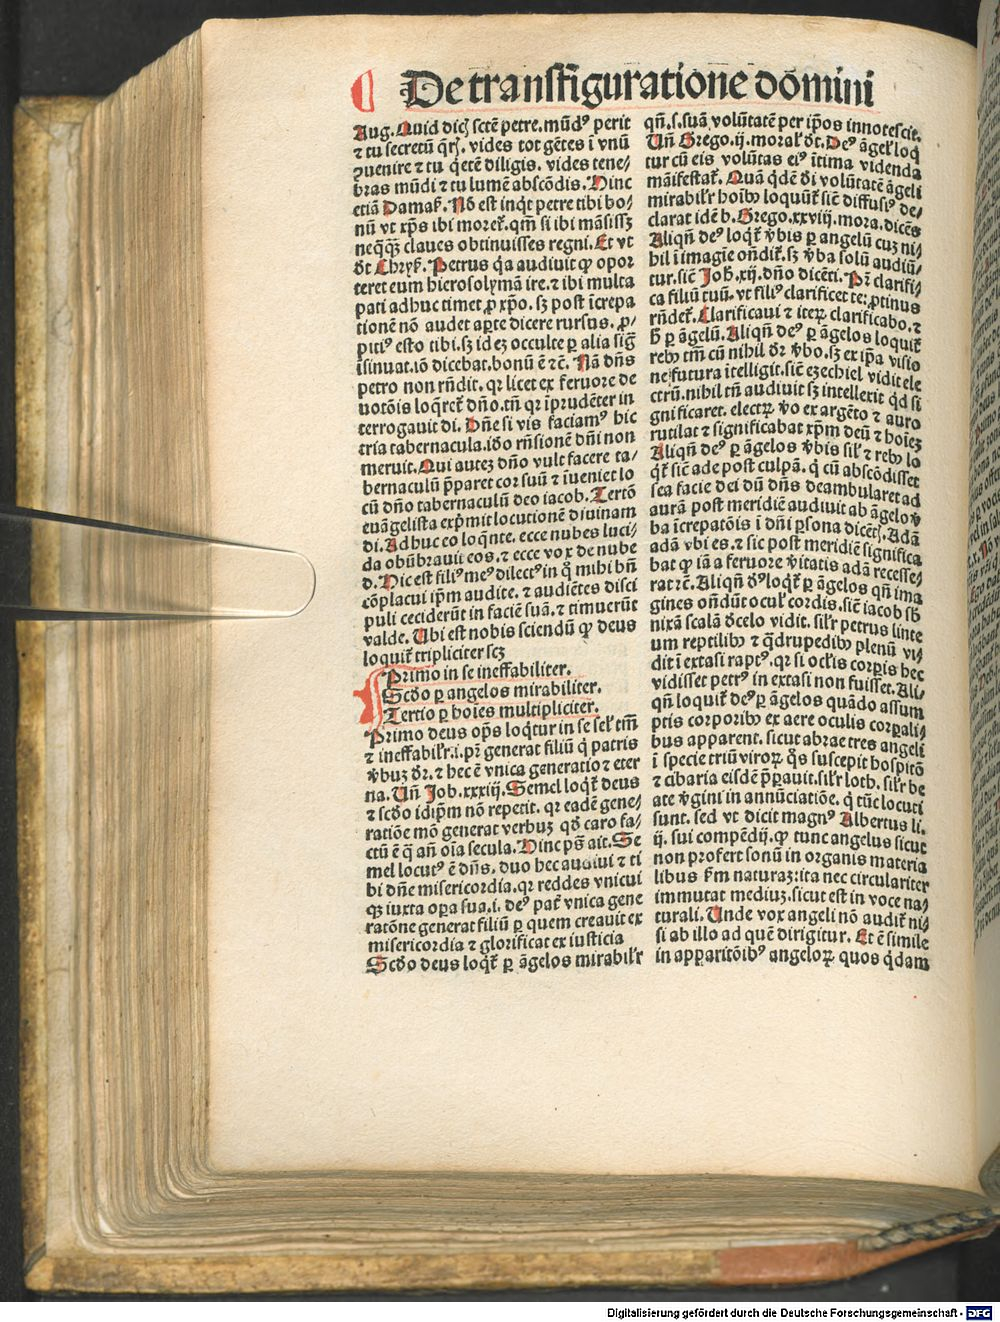 De transfiguratione dōmini
Aug. Quid dicꝭ sctē petre. mūdꝰ perit
⁊ tu secretū q̄rꝭ. vides tot gētes ī vnū
ꝯuenire ⁊ tu q̇etē diligis. vides tene/
bras mūdi ⁊ tu lumē abscōdis. Hinc
etiā Damaſ. Nō est inq̇t petre tibi bo/
nū vt xp̄s ibi moreſ. qm̄ si ibi māsissꝫ
neq̄q̄ꝫ claues obtinuisses regni. Et vt
dt Chryſ. Petrus q̇a audiuit ꝙ opor
teret eum hierosolymā ire. ⁊ ibi multa
pati adhuc timet ꝓ xp̄o. sꝫ post īcrepa
tionē nō audet aꝑte dicere rursus. ꝓ/
pitiꝰ esto tibi. sꝫ id eꝫ occulte ꝑ alia sig̅
īsinuat. iō dicebat. bonū ē ⁊c̄. Nā dn̄s
petro non rn̄dit. qꝛ licet ex feruore de
uotōis loq̄ret̄ dn̄o. tn̄ qꝛ īprudēter in
terrogauit di. Dn̄e si vis faciamꝰ hic
tria tabernacula. iō rn̄sionē dn̄i non
meruit. Qui autez dn̄o vult facere ta/
bernaculū p̄paret cor suū ⁊ īueniet lo
cū dn̄o tabernaculū deo iacob. Tertō
euāgelista exp̄mit locutionē diuinam
di. Adhuc eo loq̄nte. ecce nubes luci/
da obūbrauit eos. ⁊ ecce vox de nube
d. Hic est filiꝰ meꝰ dilectꝰ in q̊ mihi bn̄
cōplacui ip̄m audite. ⁊ audiētes disci
puli ceciderūt in faciē suā. ⁊ timuerūt
valde. Ubi est nobis sciendū ꝙ deus
loquit̄ tripliciter scꝫ
Primo in se ineffabiliter.
Scd̄o ꝑ angelos mirabiliter.
Tertio ꝑ hoīes multipliciter.
Primo deus op̄s loq̄tur in se sel̄ tm̄
⁊ ineffabil̄r. i. pr̄ generat filiū q̇ patris
v̄buꝫ dr̄. ⁊ hec ē vnica generatio ⁊ eter
na. Un̄ Job. xxxiij. Semel loq̇t̄ deus
⁊ scd̄o idip̄m nō repetit. qꝛ eadē gene/
ratiōe mō generat verbuꝫ qd̄ caro fa/
ctū ē q̇ an̄ oīa secula. Hinc ps̄ ait. Se
mel locutꝰ ē dn̄s. duo hec audiui ⁊ ti
bi dn̄e misericordia. qꝛ reddes vnicui
qꝫ iuxta oꝑa sua. i. deꝰ pat̄ vnica gene
ratōne generat filiū ꝑ quem creauit ex
misericordia ⁊ glorificat ex iusticia
Scd̄o deus loq̇t̄ ꝑ āgelos mirabil̄r
qn̄. s. suā volūtatē per ip̄os innotescit.
Un̄ Grego. ij. moral̄ dt. Deꝰ āgel̄ loq̇
tur cū eis volūtas eiꝰ ītima videnda
māifestat̄. Quā q̇dē di volūtatē āgeli
mirabil̄r hoībꝰ loquūt̄ sic̄ diffusiꝰ de/
clarat idē b. Grego. xxviij. mora. dicēs
Aliqn̄ deꝰ loq̇t̄ v̄bis ꝑ angelū cuꝫ ni/
hil ī imagīe on̄dit̄. sꝫ v̄ba solū audiū/
tur. sic̄ Joh̄. xij. dn̄o dicēti. Pr̄ clarifi/
ca filiū tuū. vt filiꝰ clarificet te: ꝓtinus
rn̄det̄. Clarificaui ⁊ iteꝝ clarificabo. ⁊
h̄ ꝑ āgelū. Aliqn̄ deꝰ ꝑ āgelos loquit̄
rebꝰ tm̄ cū nihil dr̄ v̄bo. sꝫ ex ip̄a visio
ne futura ītelligit. sic̄ ezechiel vidit ele
ctrū. nihil tn̄ audiuit sꝫ intellexit q̇d si
gnificaret. electꝝ v̄o ex argēto ⁊ auro
rutilat ⁊ significabat xp̄m deū ⁊ hoīeꝫ
Aliqn̄ deꝰ ꝑ āgelos v̄bis sil̄ ⁊ rebꝰ lo
q̇t̄ sic̄ ade post culpā. q̇ cū abscōdisset
sea facie dei dū dn̄s deambularet ad
aurā post meridiē audiuit ab āgelo v̄
ba īcrepatōis ī dn̄i ꝑsona dicētꝭ. Adā
adā vbi es. ⁊ sic post meridiē significa
bat ꝙ iā a feruore v̄itatis adā recesse/
rat ⁊c̄. Aliqn̄ dꝰ loq̇t̄ ꝑ āgelos qn̄ ima
gines on̄dūt ocul̄ cordis. sic̄ iacob sb̄
nixā scalā d̄celo vidit. sil̄r petrus linte
um reptilibꝰ ⁊ q̄drupedibꝰ plenū vi/
dit ī extasi raptꝰ. qꝛ si ocl̄is corꝑis hec
vidisset petrꝰ in extasi non fuisset. Ali/
qn̄ loquit̄ deꝰ ꝑ āgelos quādo assum
ptis corporibꝰ ex aere oculis corꝑali/
bus apparent. sicut abrae tres angeli
ī specie triū viroꝝ q̊s suscepit hospitō
⁊ cibaria eisdē p̄parauit. sil̄r loth. sil̄r be
ate v̄gini in annūciatiōe. q̇ tūc locuti
sunt. sed vt dicit magnꝰ Albertus li.
ij. sui compēdij. ꝙ tunc angelus sicut
non profert sonū in organis materia
libus s̄m naturaꝫ: ita nec circulariter
immutat mediuꝫ. sicut est in voce na/
turali. Unde vox angeli nō audit̄ ni/
si ab illo ad quē dirigitur. Et ē simile
in apparitōibꝰ angeloꝝ quos q̇dam
Digitalisierung gefördert durch die Deutsche Forschungsgemeinschaft - DFG